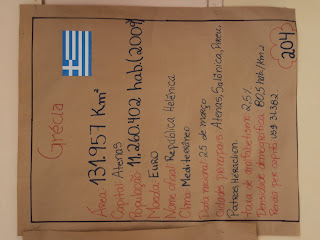 Grécia
Área: 131.957 Km²
Capital: Atenas
População: 11.260.402 hab.(2009)
Moeda: Euro
Nome oficial: República Helênica
Clima: Mediterrâneo
Data nacional: 25 de março
Cidades principais: Atenas, Salônica, Pireu,
Patras, Heraclion.
Taxa de analfabetismo: 2,5%
Densidade demográfica: 80,5 hab/Km2
Renda per capita: US$ 31.382
204